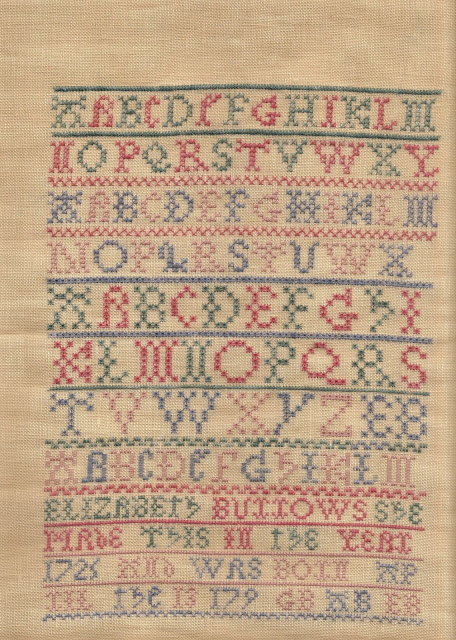 A B C D E F G H I K L M
N O P Q R S T V W X Y
A A B C D E F G H I K L M
N O P Q R S T U W X
A B C D E F G H I
K L M N O P Q R S
T V W X Y Z E B
A B C D E F G H I K L M
ELIZABETH BUTTOWS SHE
MADE THIS IN THE YEAR
1725 AND WAS BORN AP
THE 13 179 GB AB EB